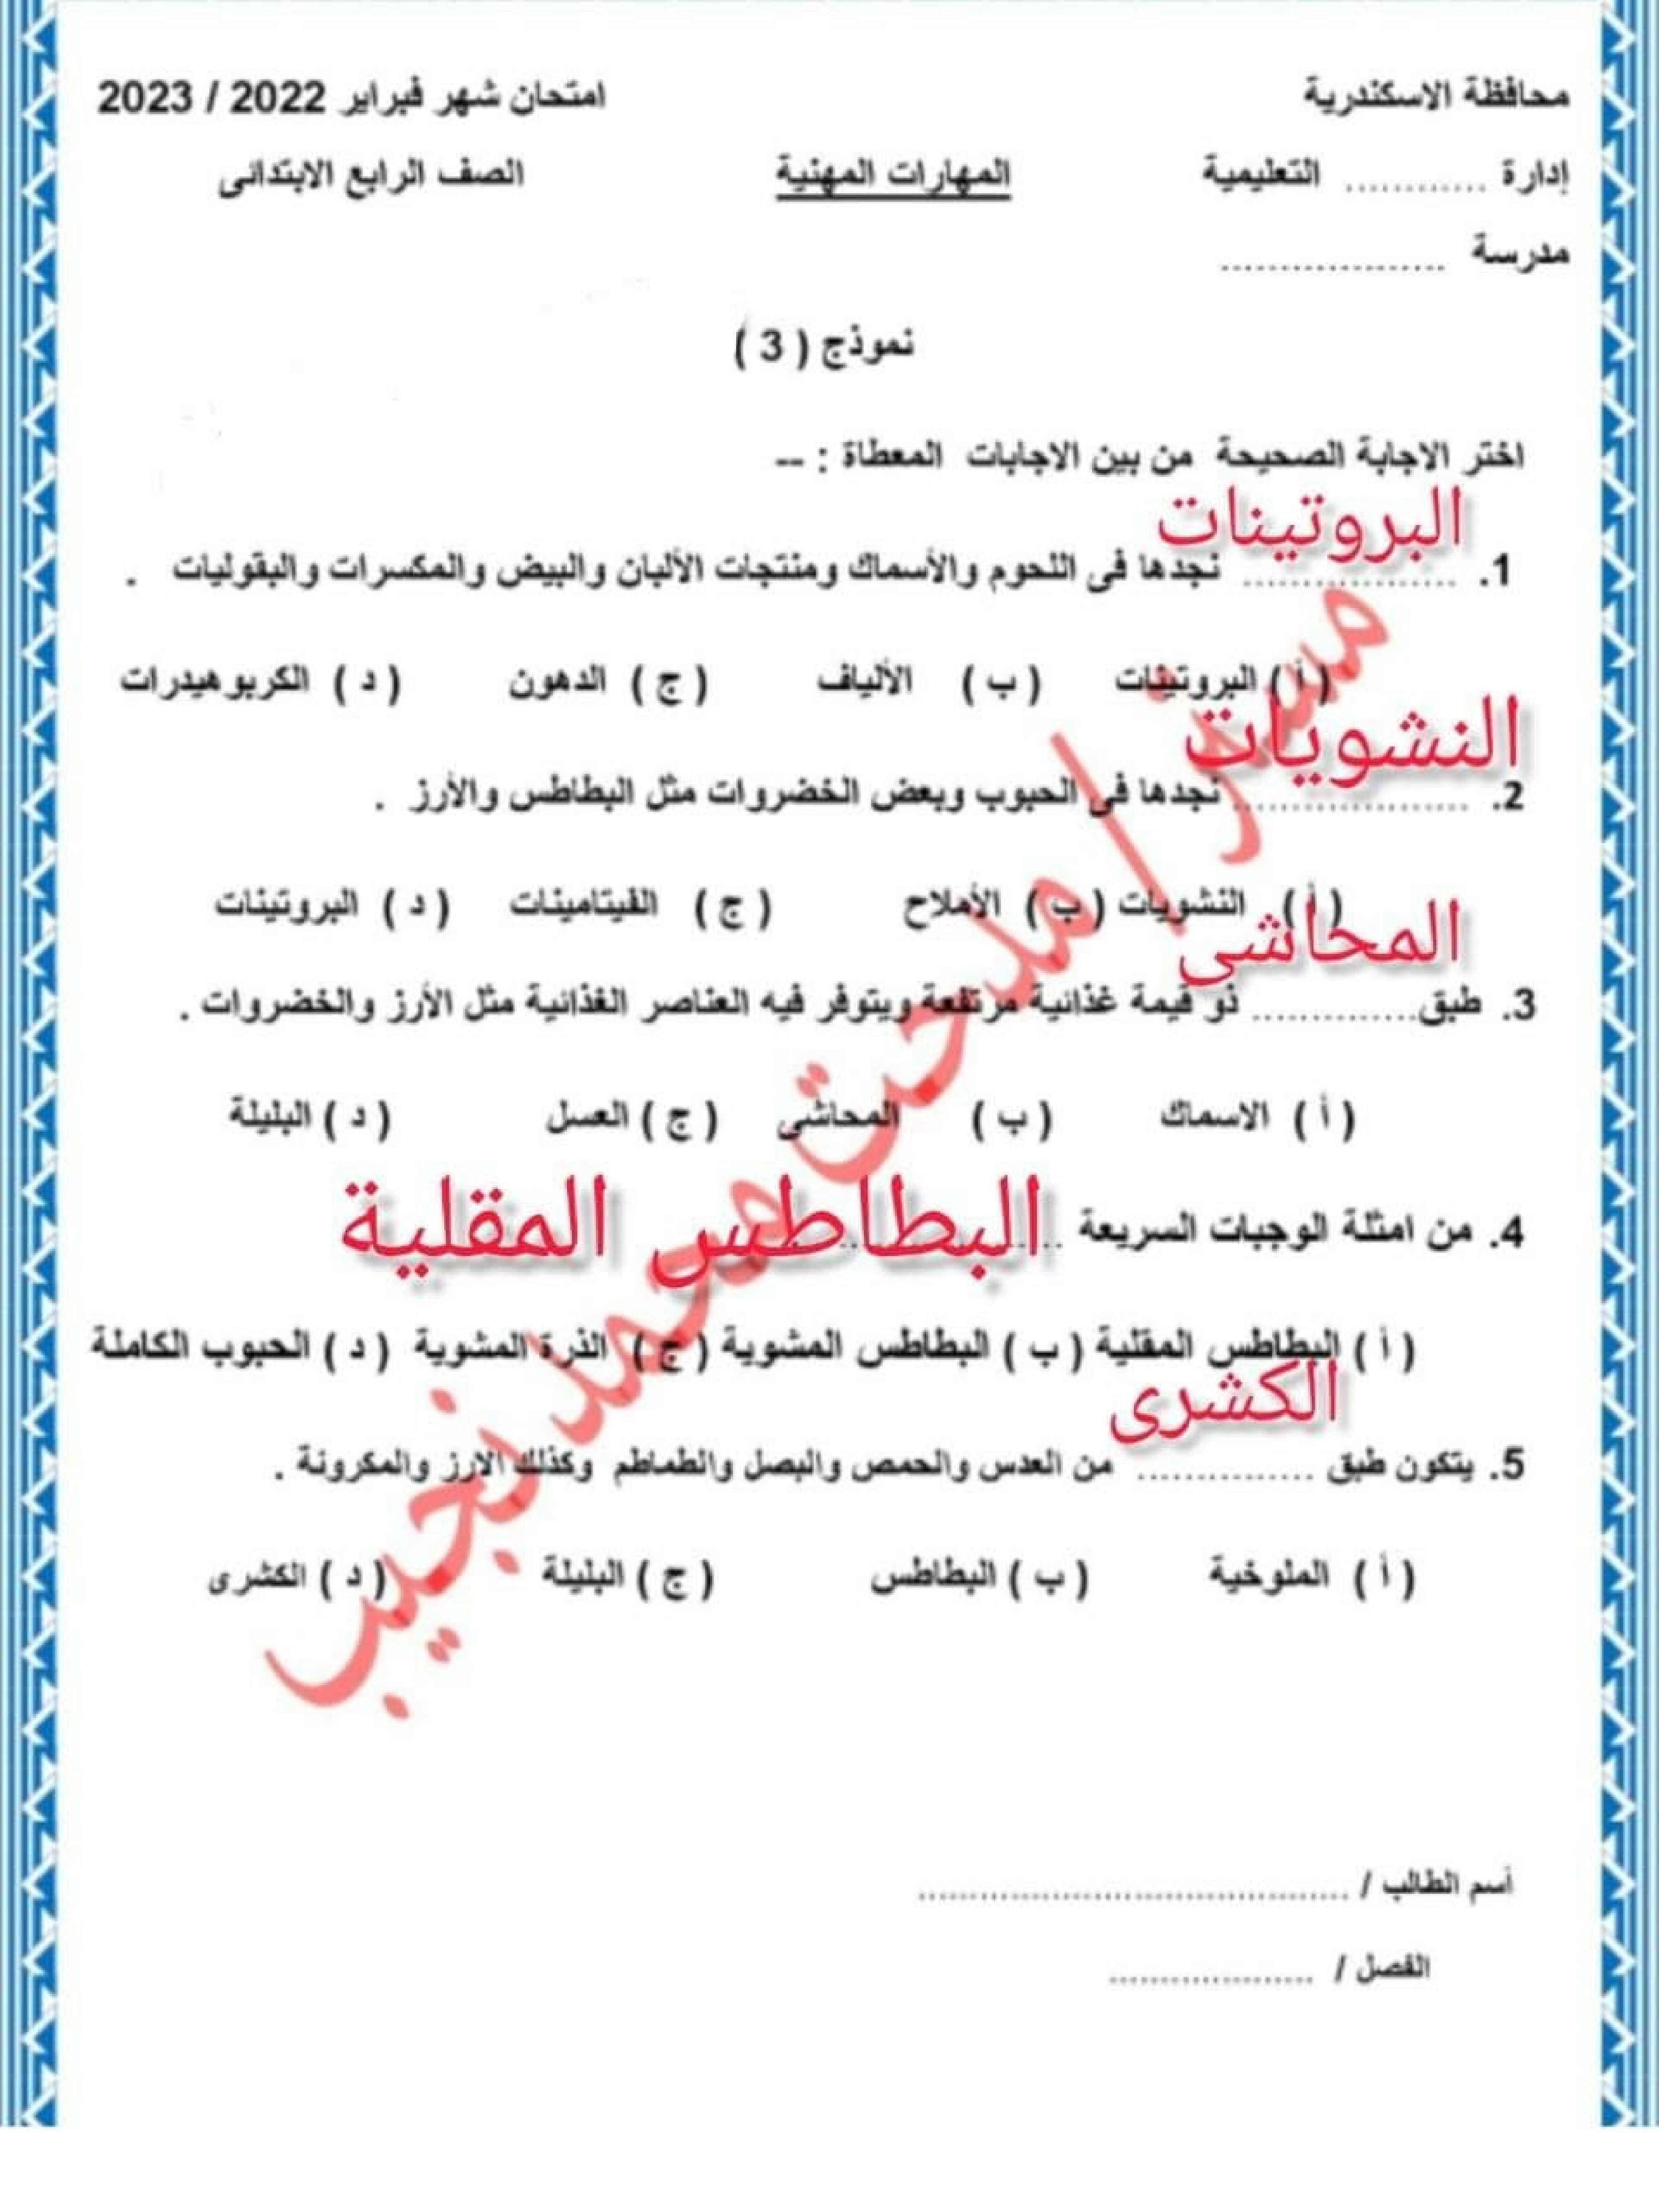 محافظة الاسكندرية امتحان شهر فبراير 2022 / 2023
إدارة ............ التعليمية المهارات المهنية الصف الرابع الابتدائى
مدرسة ...................
نموذج ( 3 )
اختر الاجابة الصحيحة من بين الاجابات المعطاة : --
البروتينات
1. .................. نجدها فى اللحوم والأسماك ومنتجات الألبان والبيض والمكسرات والبقوليات .
( أ ) البروتينات ( ب ) الألياف ( ج ) الدهون ( د ) الكربوهيدرات
النشويات
2. .................... نجدها فى الحبوب وبعض الخضروات مثل البطاطس والأرز .
( أ ) النشويات ( ب ) الأملاح ( ج ) الفيتامينات ( د ) البروتينات
المحاشى
3. طبق.............. ذو قيمة غذائية مرتفعة ويتوفر فيه العناصر الغذائية مثل الأرز والخضروات .
( أ ) الاسماك ( ب ) المحاشى ( ج ) العسل ( د ) البليلة
4. من امثلة الوجبات السريعة .................... البطاطس المقلية
( أ ) البطاطس المقلية ( ب ) البطاطس المشوية ( ج ) الذرة المشوية ( د ) الحبوب الكاملة
الكشرى
5. يتكون طبق ............... من العدس والحمص والبصل والطماطم وكذلك الارز والمكرونة .
( أ ) الملوخية ( ب ) البطاطس ( ج ) البليلة ( د ) الكشرى
مستر / مدحت محمد نجيب
أسم الطالب / .........................................
الفصل / ....................